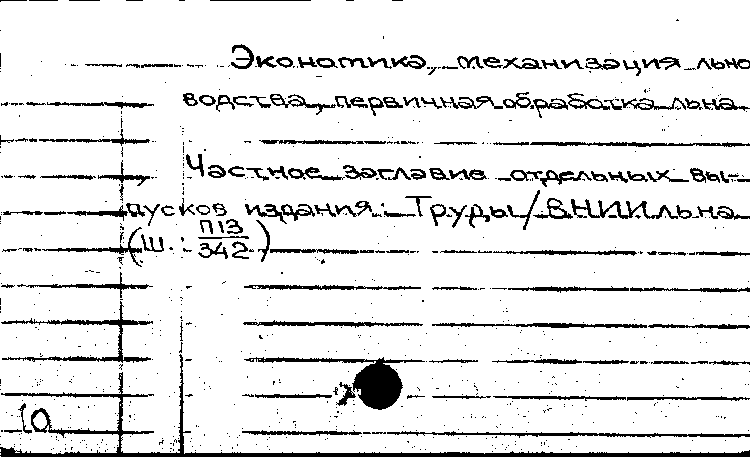 Экономика, механизация льно
водства, первичная обработка льна.
Частное заглавие отдельных вы-
пусков издания: Труды/ВНИИльна
(Ш.: П13/342)
10